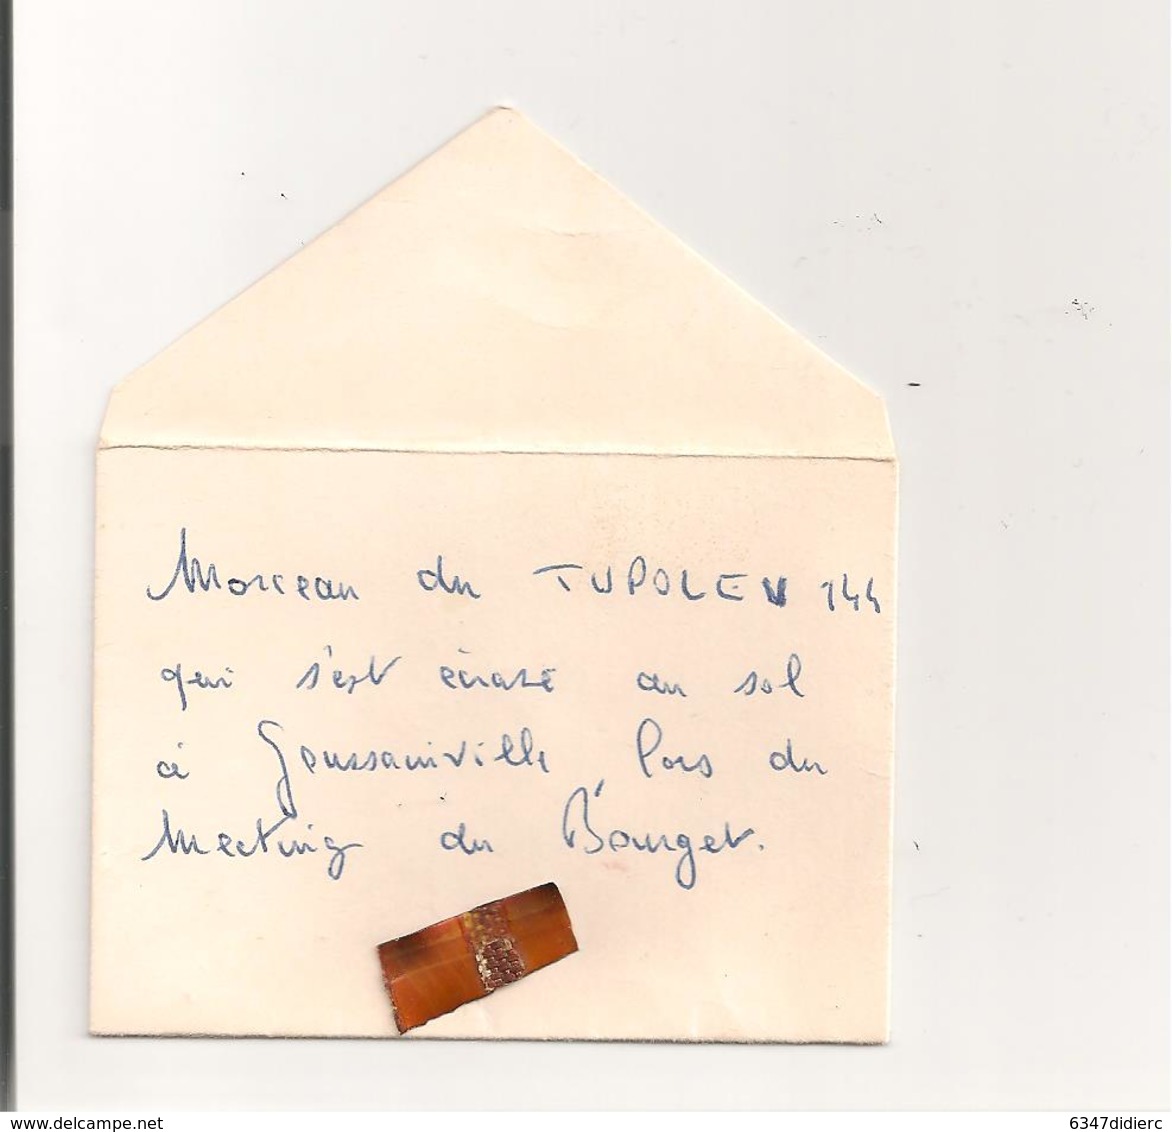 Morceau du TUPOLEV 144
qui s'est écrasé au sol
à Goussainville, lors du
Meeting du Bourget.
www.delcampe.net
6347didierc